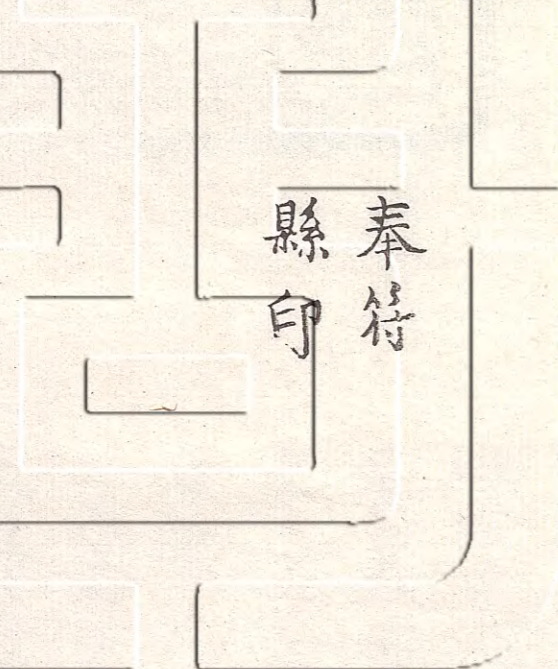 奉符
縣印